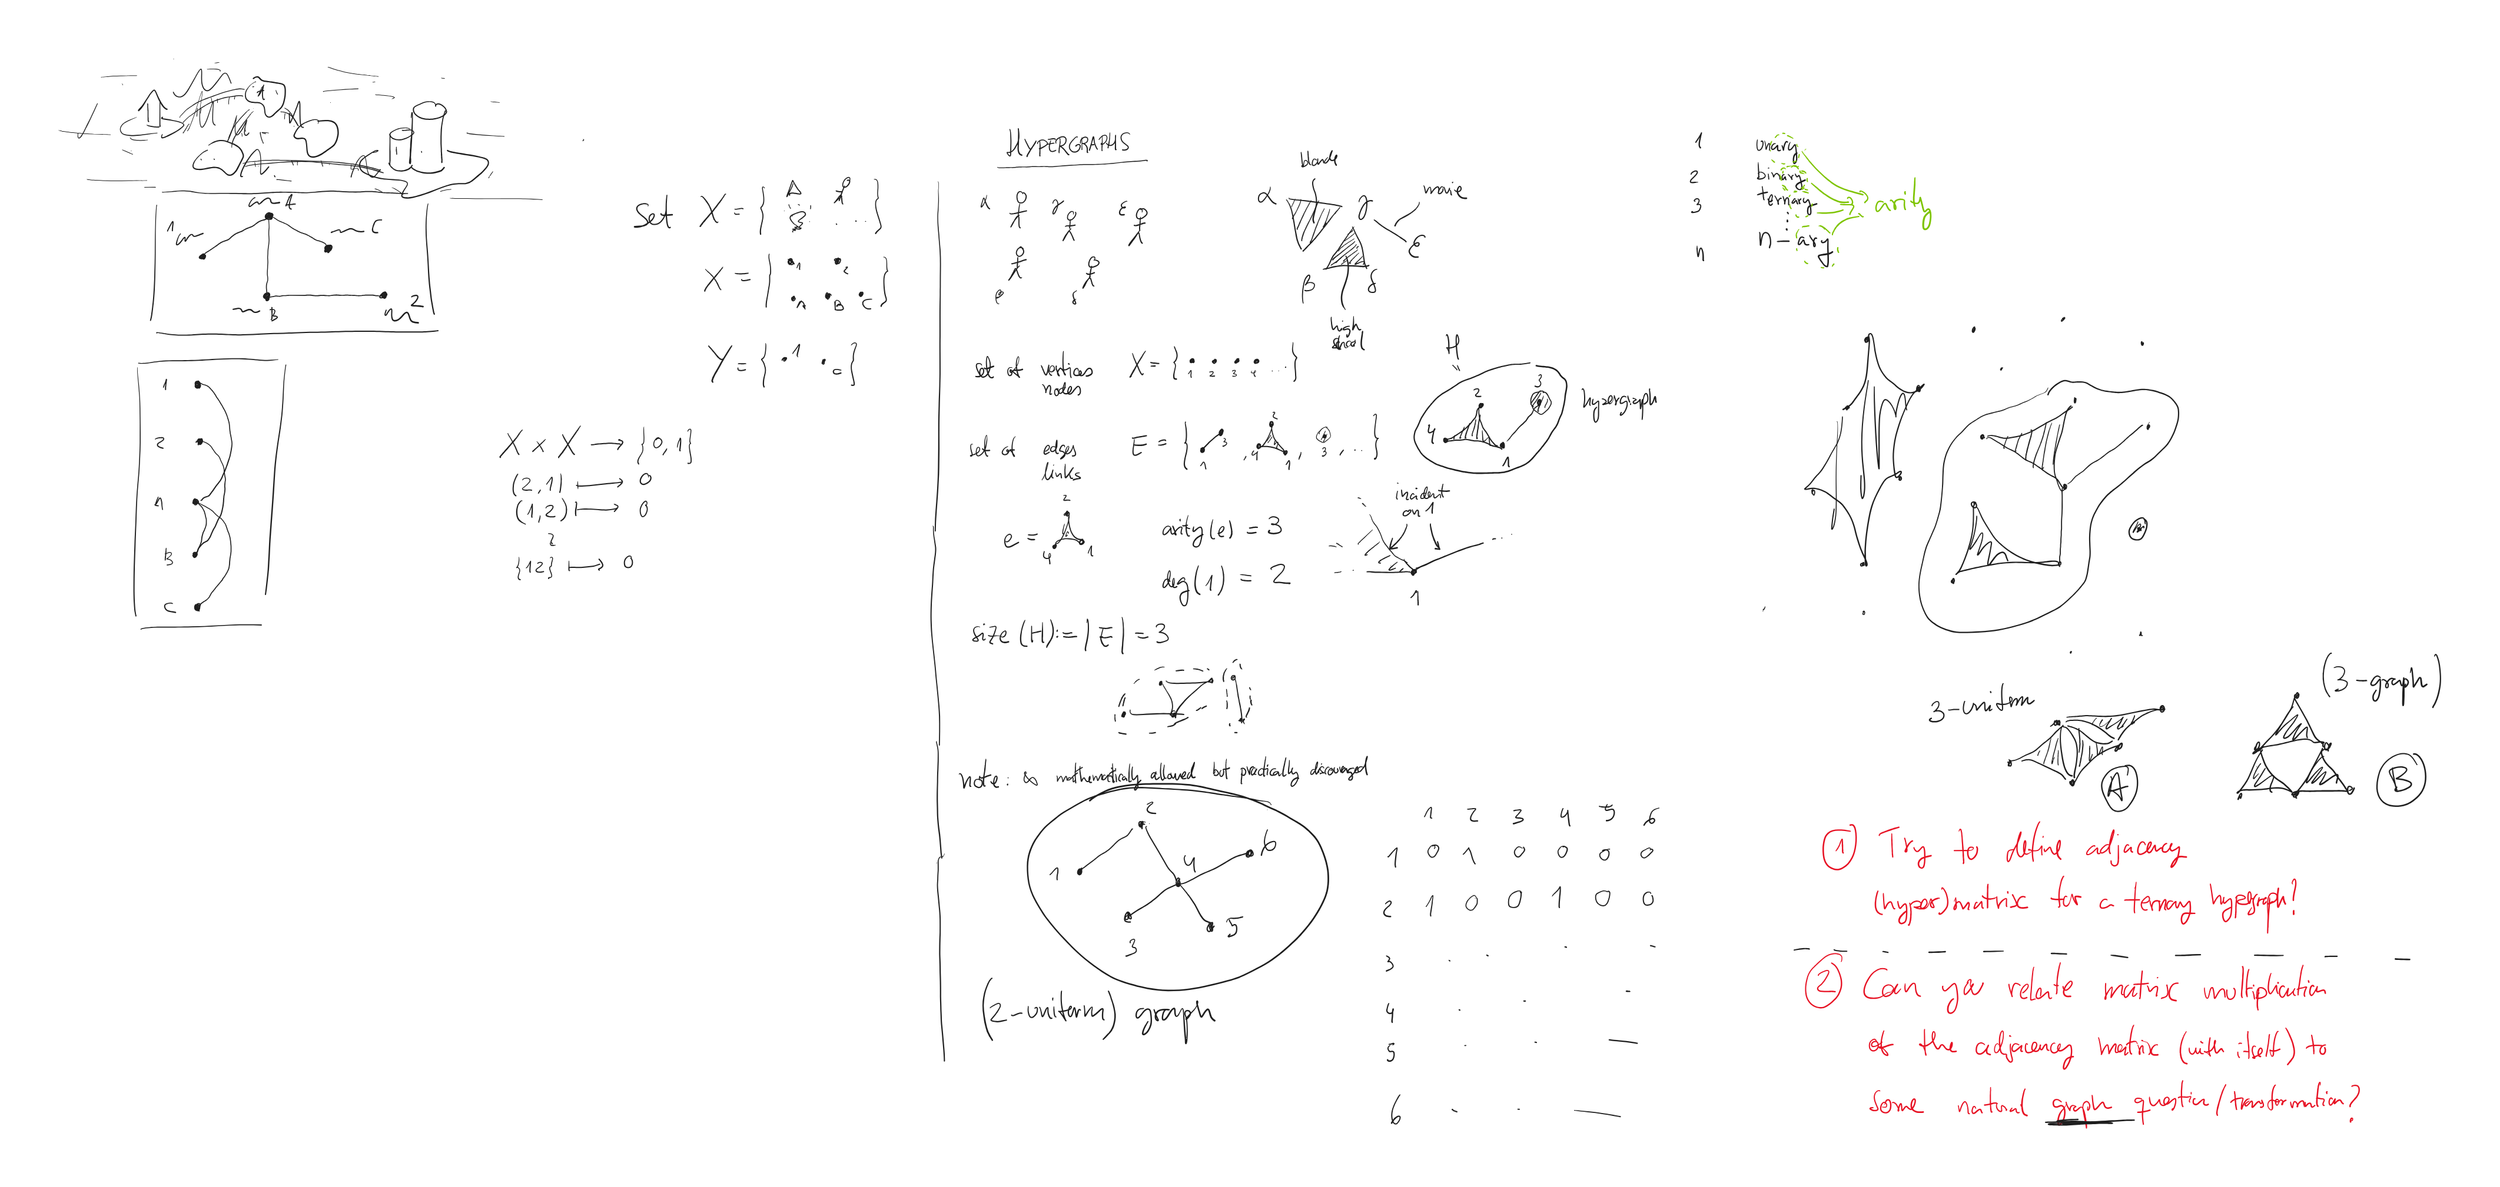 A
A
1
C
B
2
1
2
A
B
C
Set X = { ... }
X = { 1 2
A B C }
Y = { 1 C }
X × X → {0,1}
(2,1) ⟼ 0
(1,2) ⟼ 0
{12} ⟼ 0
HYPERGRAPHS
α γ ε
β δ
blonde
α γ movie
ε
β δ
high
school
set of vertices X = { 1 2 3 4 ... }
nodes
set of edges E = { 1 3 , 4 2 1 , 3 , ... }
links
H
2 3
4 1
hypergraph
e = 2 4 1
arity(e) = 3
deg(1) = 2
incident
on 1
1
size (H) := |E| = 3
note: ∞ mathematically allowed but practically discouraged
2
1 4 6
3 5
(2-uniform) graph
1 2 3 4 5 6
1 0 1 0 0 0 0
2 1 0 0 1 0 0
3
4
5
6
1 unary
2 binary
3 ternary
n n-ary
arity
3-uniform
A
(3-graph)
B
1 Try to define adjacency
(hyper)matrix for a ternary hypegraph?
2 Can you relate matrix multiplication
of the adjacency matrix (with itself) to
some natural graph question/transformation?